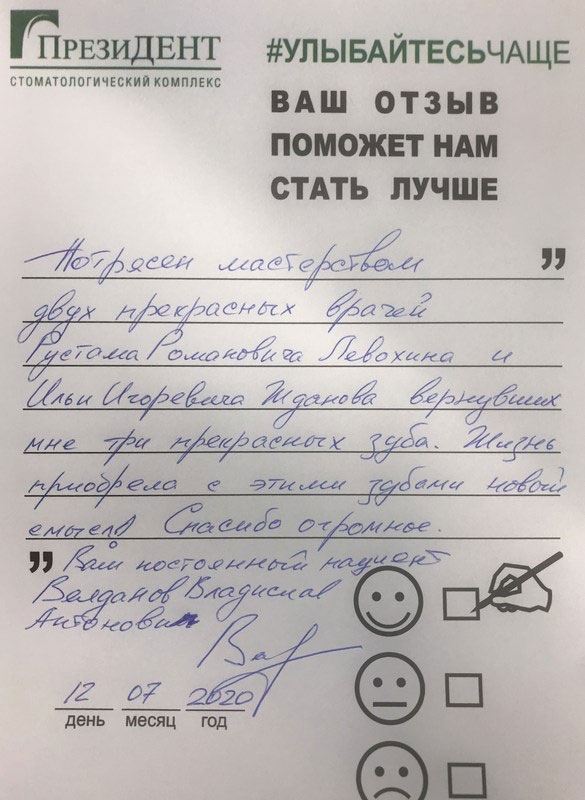 ПРЕЗИДЕНТ
СТОМАТОЛОГИЧЕСКИЙ КОМПЛЕКС
#УЛЫБАЙТЕСЬЧАЩЕ
ВАШ ОТЗЫВ
ПОМОЖЕТ НАМ
СТАТЬ ЛУЧШЕ
Потрясен мастерством
двух прекрасных врачей
Рустама Романовича Левохина и
Ильи Игоревича Жданова вернувших
мне три прекрасных зуба. Жизнь
приобрела с этими зубами новый
смысл. Спасибо огромное.
Ваш постоянный пациент
Велданов Владислав
Антонович
12 07 2020
день месяц год